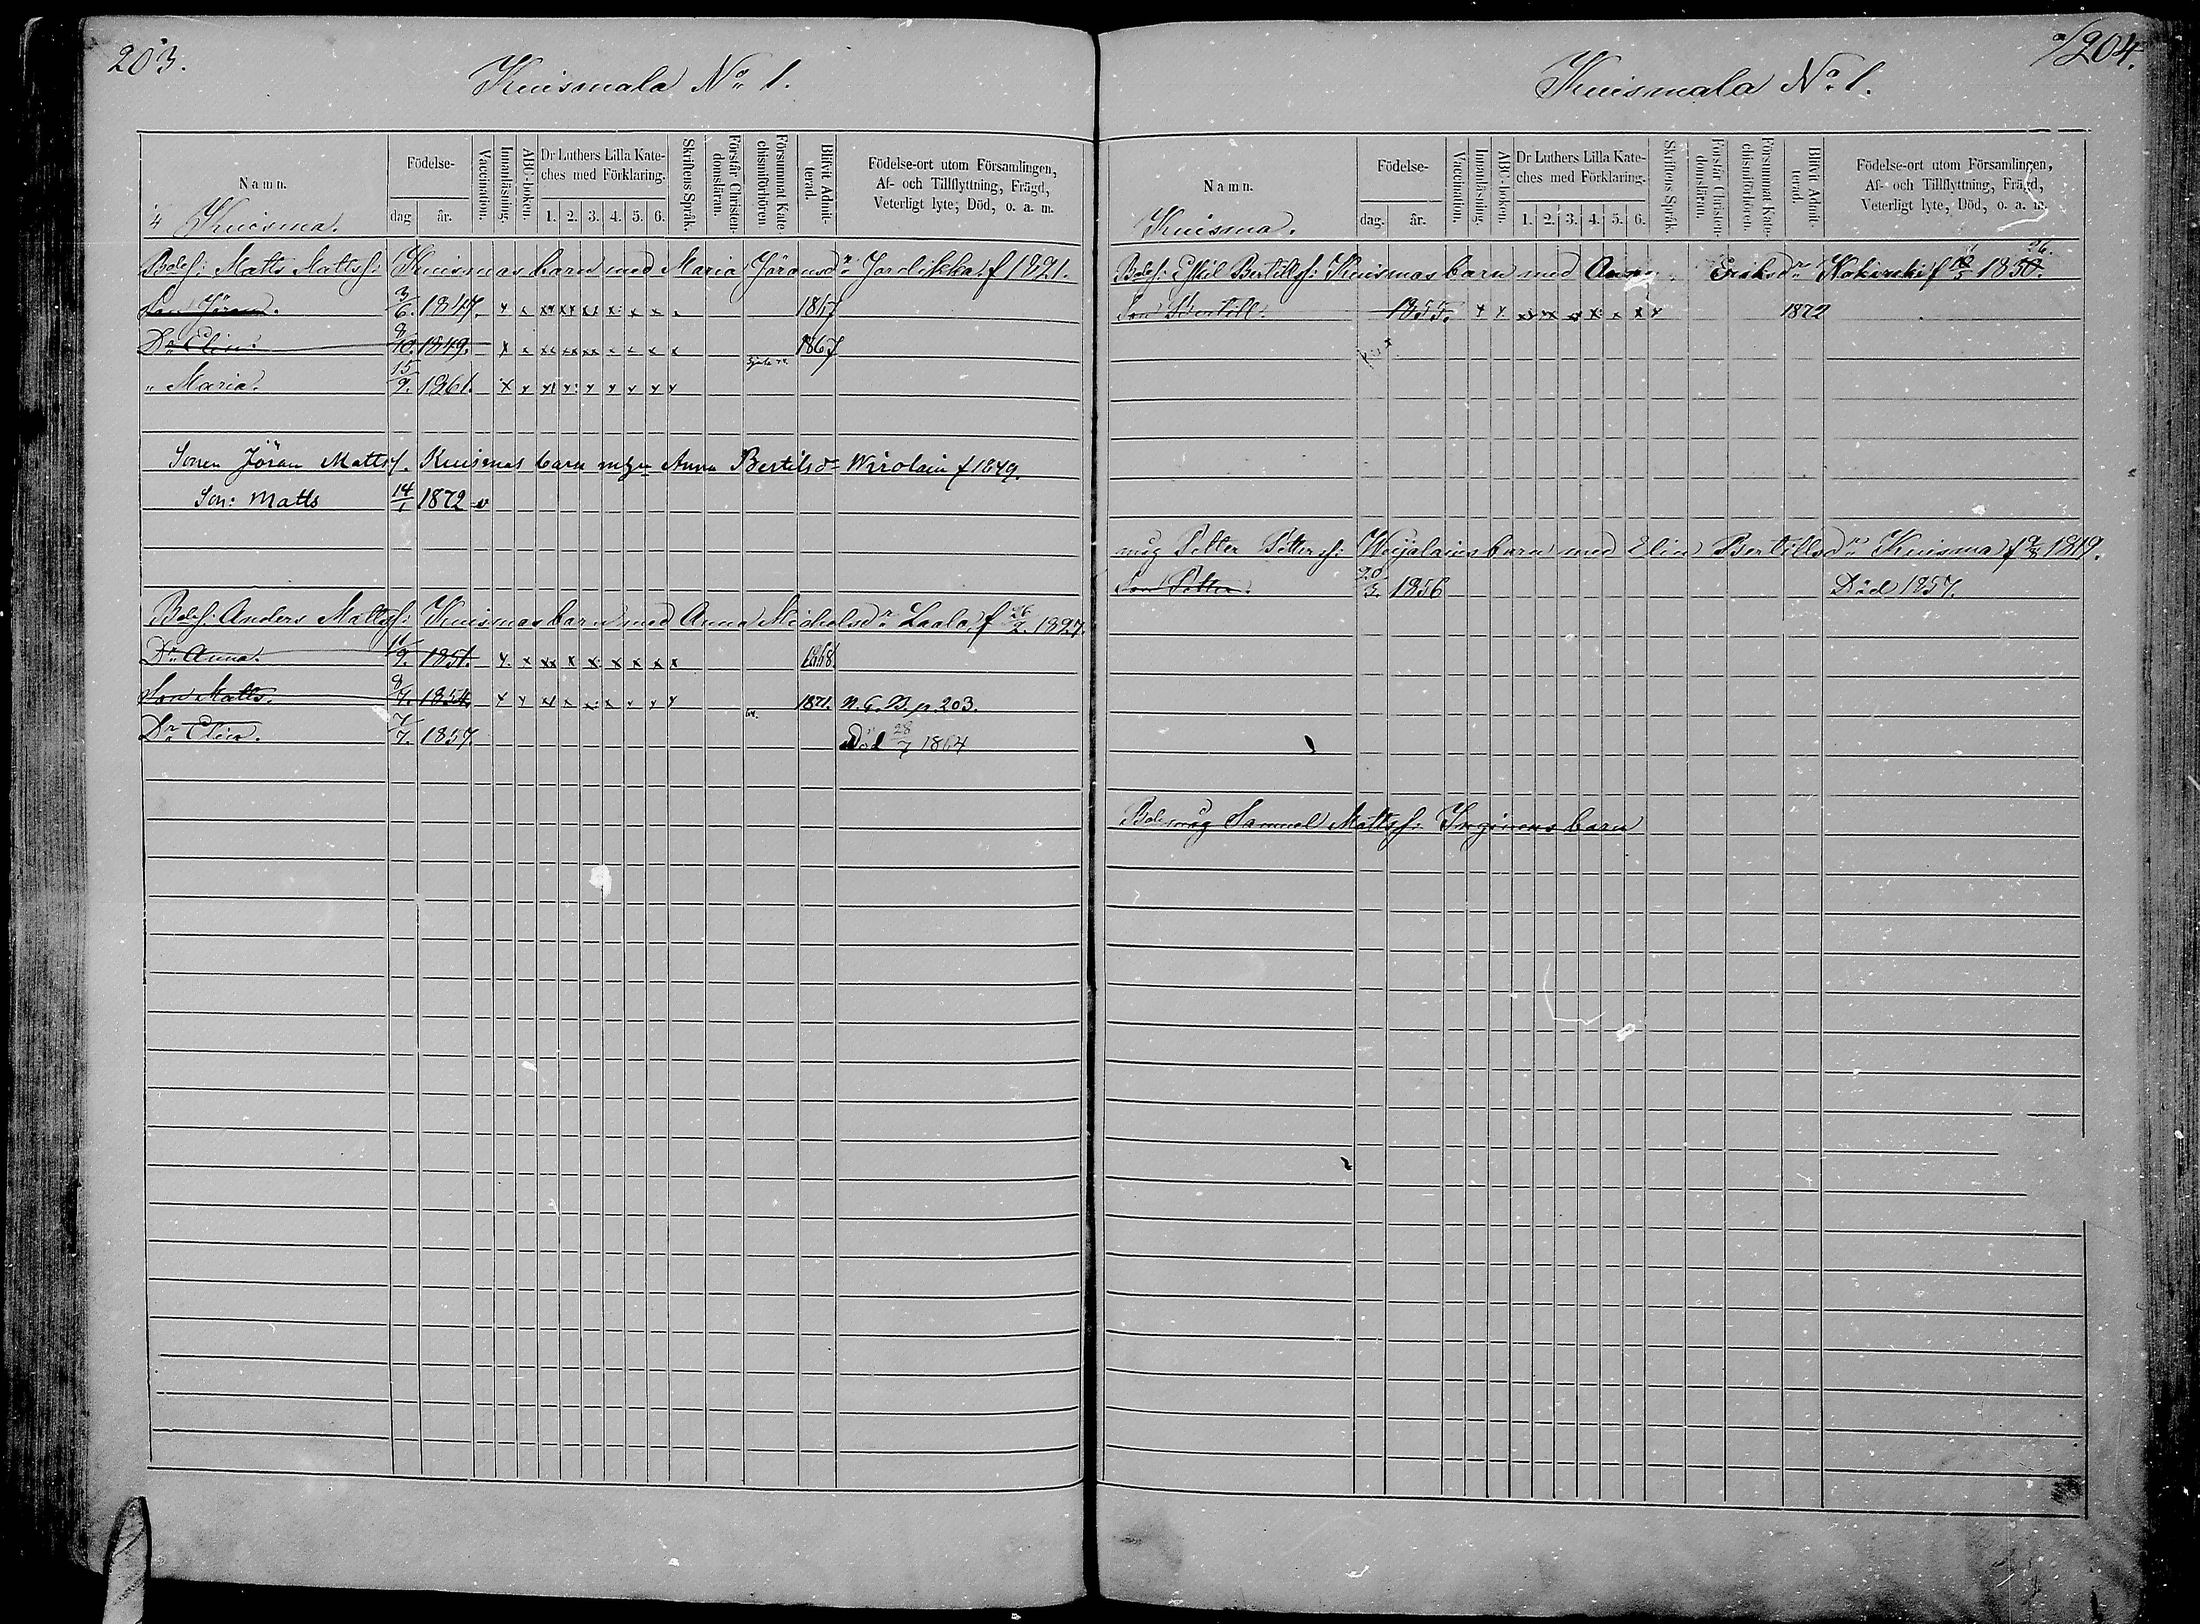 203.
Kuismala No 1.
Namn.
Födelse-
dag
år.
Vaccination.
Innanläsning.
ABC-boken.
Dr Luthers Lilla Kate-
ches med Förklaring.
1. 2. 3. 4. 5. 6.
Skriftens Språk.
Förstår Christen-
domsläran.
Försummat Kate-
chismiförhören
Blifvit Admit-
terad.
Födelse-ort utom Församlingen,
Af- och Tillflyttning, Frägd,
Veterligt lyte, Död, o. a. m.
Kuisma.
Bds: Matts Mattss: Kuismas barn med Maria Jöransdr Jordikka f 1821.
Son Jöran. 3/6. 1847. 1867
Dr Elin. 9/10. 1849. 1867
" Maria. 15/2. 1861.
Sonen Jöran Mattss. Kuismas barn m. Anna Bertilsdr Wirolain f 1849.
Son: Matts 14/1 1872 v
Bds: Anders Mattss: Kuismas barn med Anna Michelsdr Laala f 26/2. 1827.
Dr Anna. 11/9. 1851. 1868
Son Matts. 9/7. 1854. 1871. N. C. B. p. 203.
Dr Elin. 7/7. 1857. Död 28/7 1864
204.
Kuismala No 1.
Namn.
Födelse-
dag.
år.
Vaccination.
Innanläsning.
ABC-boken.
Dr Luthers Lilla Kate-
ches med Förklaring.
1. 2. 3. 4. 5. 6.
Skriftens Språk.
Förstår Christen-
domsläran.
Försummat Kate-
chismiförhören.
Blifvit Admit-
terad.
Födelse-ort utom Församlingen,
Af- och Tillflyttning, Frägd,
Veterligt lyte, Död, o. a. m.
Kuisma.
Bds: Eskil Bertillss: Kuismas barn med Anna Eriksdr f 1850.
Son Bertill. 1855. 1872
måg Petter Petterss: Weijalains barn med Elin Bertillsdr Kuisma f 1819.
Son Petter. 20/3. 1856 Död 1857.
måg Samuel Mattss: Inginens barn